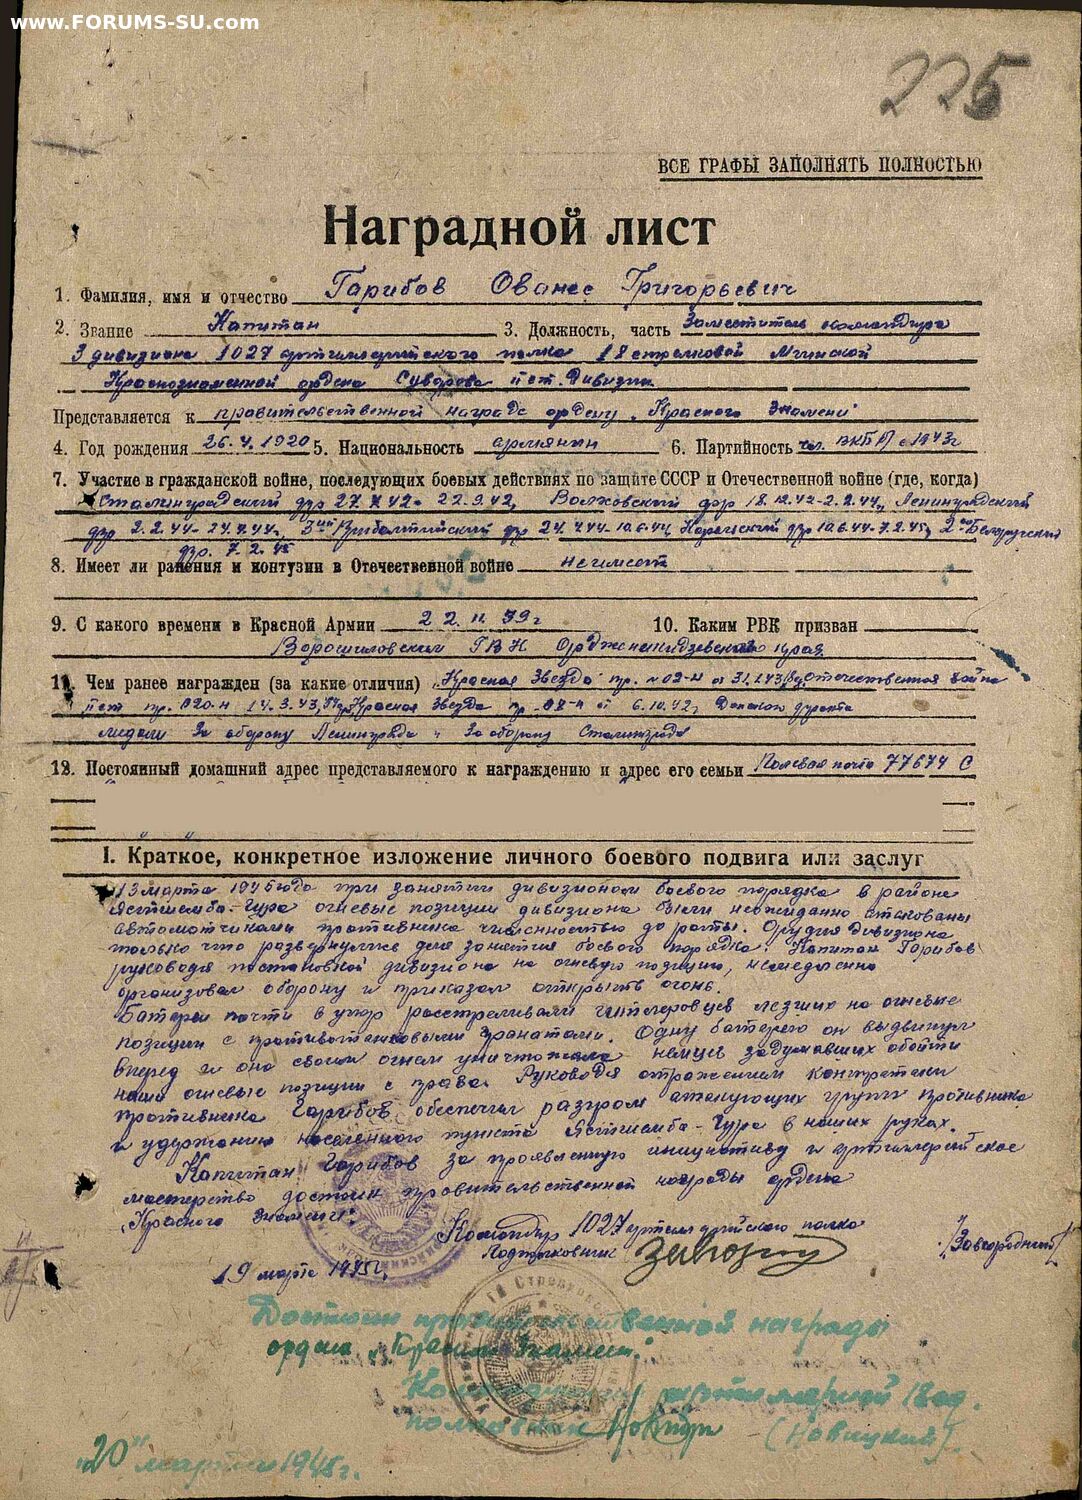 www.FORUMS-SU.com
225
ВСЕ ГРАФЫ ЗАПОЛНЯТЬ ПОЛНОСТЬЮ
Наградной лист
1. Фамилия, имя и отчество Гарибов Ованес Григорьевич
2. Звание Капитан 3. Должность, часть Заместитель командира
3 дивизиона 1027 артиллерийского полка 18 стрелковой Мгинской
Краснознаменной ордена Суворова дивизии
Представляется к правительственной награде ордену „Красного Знамени"
4. Год рождения 1920 5. Национальность армянин 6. Партийность чл. ВКП/б/ с 1943г
7. Участие в гражданской войне, последующих боевых действиях по защите СССР и Отечественной войне (где, когда)
Сталинградский фр 22.9.42, Волховский фр 18.12.42-2.2.44, Ленинградский
фр 2.2.44- 24.4.44, 3ий Прибалтийский фр 24.4.44-10.6.44, Карельский фр 10.6.44-7.2.45, 2ой Белорусский
фр. 7.2.45
8. Имеет ли ранения и контузии в Отечественной войне не имеет
9. С какого времени в Красной Армии 22.11.39г 10. Каким РВК призван
Ворошиловским ГВК Орджоникидзевского края
11. Чем ранее награжден (за какие отличия) „Красная Звезда" пр. №02-н от 31.1.43, Отечественная война
пр. №20-н 14.3.43, Красная Звезда пр -08-н от 6.10.42, Донского фронта
медали За оборону Ленинграда и За оборону Сталинграда
12. Постоянный домашний адрес представляемого к награждению и адрес его семьи Полевая почта 77674 С
I. Краткое, конкретное изложение личного боевого подвига или заслуг
13 марта 1945 года при занятии дивизионом боевого порядка в районе
Ястшемба-Гура огневые позиции дивизиона были неожиданно атакованы
автоматчиками противника численностью до роты. Орудия дивизиона
только что развернулись для занятия боевого порядка. Капитан Гарибов
руководя постановкой дивизиона на огневую позицию, немедленно
организовал оборону и приказал открыть огонь.
Батареи почти в упор расстреливали гитлеровцев лезших на огневые
позиции с противотанковыми гранатами. Одну батарею он выдвинул
вперед и она своим огнем уничтожала немцев задумавших обойти
наши огневые позиции с права. Руководя отражением контратаки
противника Гарибов обеспечил разгром атакующих групп противника
и удержание населенного пункта Ястшемба-Гура в наших руках.
Капитан Гарибов за проявленную инициативу и артиллерийское
мастерство достоин правительственной награды ордена
„Красного Знамени".
Командир 1027 артиллерийского полка
Подполковник /Завгородний/
19 марта 1945г.
Достоин правительственной награды
ордена „Красное Знамя".
Командующий артиллерией 18 сд.
полковник (Новицкий).
„20" марта 1945г.